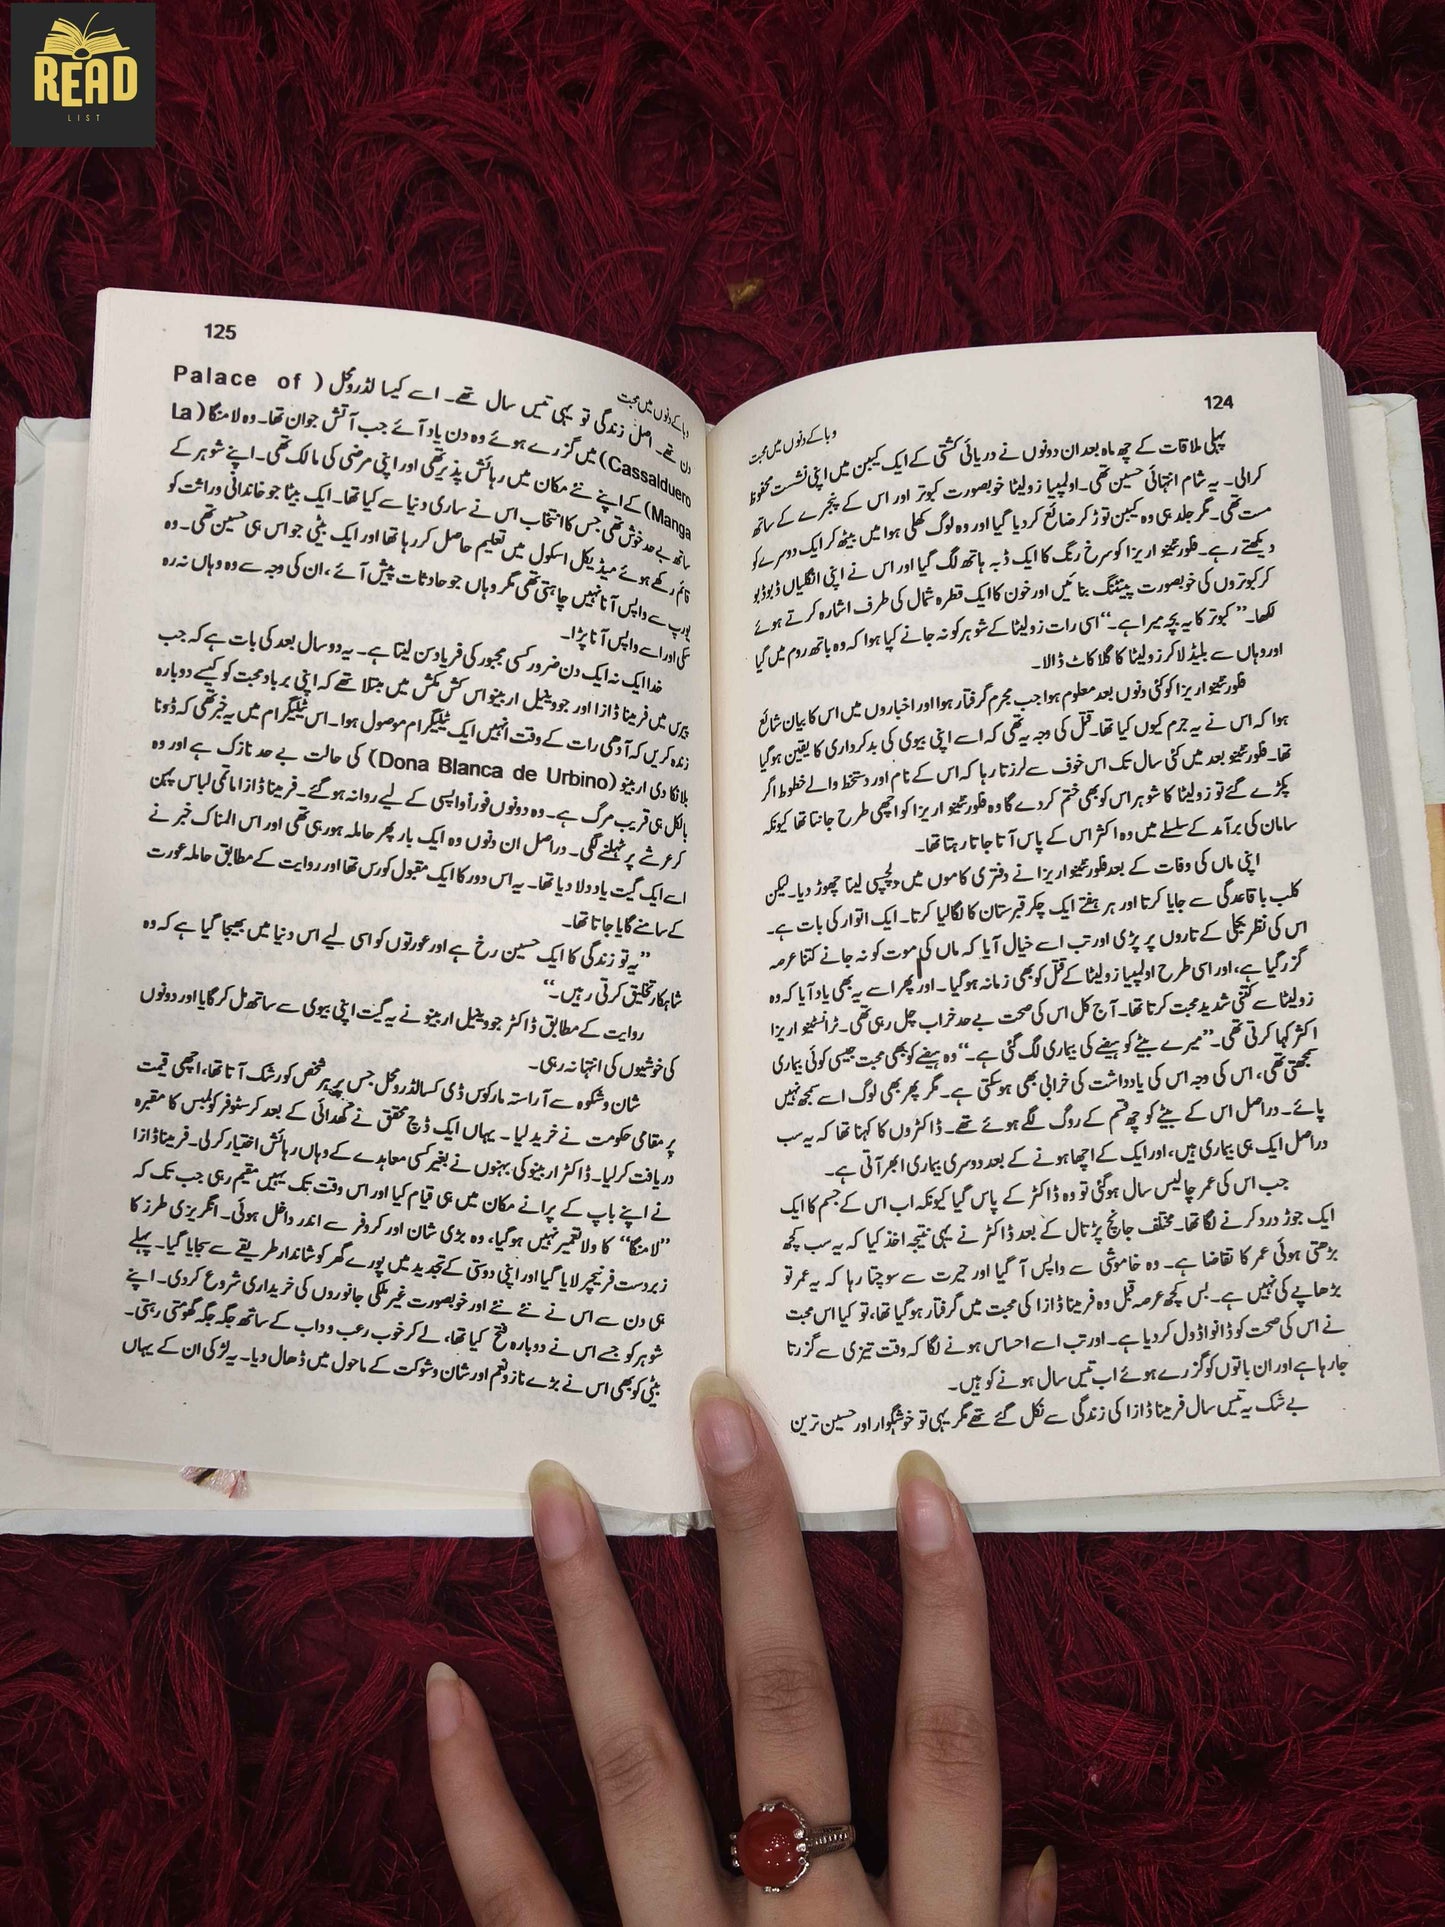 READ
LIST
124
وبا کے دنوں میں محبت
پہلی ملاقات کے چھ ماہ بعد ان دونوں نے دریائی کشتی کے ایک کیبن میں اپنی نشست محفوظ
کرالی۔ یہ شام انتہائی حسین تھی۔ اولمپیا زولیٹا خوبصورت کبوتر اور اس کے پنجرے کے ساتھ
مست تھی۔ مگر جلد ہی وہ کیبن توڑ کر ضائع کر دیا گیا اور وہ لوگ کھلی ہوا میں بیٹھ کر ایک دوسرے کو
دیکھتے رہے۔ فلورنٹینو اریزا کو سرخ رنگ کا ایک ڈبہ ہاتھ لگ گیا اور اس نے اپنی انگلیاں ڈبو ڈبو
کر کبوتروں کی خوبصورت پینٹنگ بنائیں اور خون کا ایک قطرہ شمال کی طرف اشارہ کرتے ہوئے
لکھا۔ ”کبوتر کا یہ بچہ میرا ہے۔“ اسی رات زولیٹا کے شوہر کو نہ جانے کیا ہوا کہ وہ باتھ روم میں گیا
اور وہاں سے بلیڈ لا کر زولیٹا کا گلا کاٹ ڈالا۔
فلورنٹینو اریزا کو کئی دنوں بعد معلوم ہوا جب مجرم گرفتار ہوا اور اخباروں میں اس کا بیان شائع
ہوا کہ اس نے یہ جرم کیوں کیا تھا۔ قتل کی وجہ یہ تھی کہ اسے اپنی بیوی کی بدکرداری کا یقین ہوگیا
تھا۔ فلورنٹینو بعد میں کئی سال تک اس خوف سے لرزتا رہا کہ اس کے نام اور دستخط والے خطوط اگر
پکڑے گئے تو زولیٹا کا شوہر اس کو بھی ختم کر دے گا وہ فلورنٹینو اریزا کو اچھی طرح جانتا تھا کیونکہ
سامان کی برآمد کے سلسلے میں وہ اکثر اس کے پاس آتا جاتا رہتا تھا۔
اپنی ماں کی وفات کے بعد فلورنٹینو اریزا نے دفتری کاموں میں دلچسپی لینا چھوڑ دیا۔ لیکن
کلب باقاعدگی سے جایا کرتا اور ہر ہفتے ایک چکر قبرستان کا لگا لیا کرتا۔ ایک اتوار کی بات ہے۔
اس کی نظر بجلی کے تاروں پر پڑی اور تب اسے خیال آیا کہ ماں کی موت کو نہ جانے کتنا عرصہ
گزر گیا ہے، اور اسی طرح اولمپیا زولیٹا کے قتل کو بھی زمانہ ہوگیا۔ اور پھر اسے یہ بھی یاد آیا کہ وہ
زولیٹا سے کتنی شدید محبت کرتا تھا۔ آج کل اس کی صحت بے حد خراب چل رہی تھی۔ ٹرانسٹیو اریزا
اکثر کہا کرتی تھی۔ ”میرے بیٹے کو ہیضے کی بیماری لگ گئی ہے۔“ وہ ہیضے کو بھی محبت جیسی کوئی بیماری
سمجھتی تھی، اس کی وجہ اس کی یادداشت کی خرابی بھی ہوسکتی ہے۔ مگر پھر بھی لوگ اسے سمجھ نہیں
پائے۔ دراصل اس کے بیٹے کو چھ قسم کے روگ لگے ہوئے تھے۔ ڈاکٹروں کا کہنا تھا کہ یہ سب
دراصل ایک ہی بیماری ہیں، اور ایک کے اچھا ہونے کے بعد دوسری بیماری ابھر آتی ہے۔
جب اس کی عمر چالیس سال ہوگئی تو وہ ڈاکٹر کے پاس گیا کیونکہ اب اس کے جسم کا ایک
ایک جوڑ درد کرنے لگا تھا۔ مختلف جانچ پڑتال کے بعد ڈاکٹر نے یہی نتیجہ اخذ کیا کہ یہ سب کچھ
بڑھتی ہوئی عمر کا تقاضا ہے۔ وہ خاموشی سے واپس آ گیا اور حیرت سے سوچتا رہا کہ یہ عمر تو
بڑھاپے کی نہیں ہے۔ بس کچھ عرصہ قبل وہ فرمینا ڈازا کی محبت میں گرفتار ہوگیا تھا، تو کیا اس محبت
نے اس کی صحت کو ڈانوا ڈول کر دیا ہے۔ اور تب اسے احساس ہونے لگا کہ وقت تیزی سے گزرتا
جا رہا ہے اور ان باتوں کو گزرے ہوئے اب تیس سال ہونے کو ہیں۔
بے شک یہ تیس سال فرمینا ڈازا کی زندگی سے نکل گئے تھے مگر یہی تو خوشگوار اور حسین ترین
125
وبا کے دنوں میں محبت
دن تھے۔ اصل زندگی تو یہی تیس سال تھے۔ اسے کیسالڈرو محل (Palace of
Cassalduero) میں گزرے ہوئے وہ دن یاد آئے جب آتش جوان تھا۔ وہ لا منگا (La
Manga) کے اپنے نئے مکان میں رہائش پذیر تھی اور اپنی مرضی کی مالک تھی۔ اپنے شوہر کے
ساتھ بے حد خوش تھی جس کا انتخاب اس نے ساری دنیا سے کیا تھا۔ ایک بیٹا جو خاندانی وراثت کو
قائم رکھے ہوئے میڈیکل اسکول میں تعلیم حاصل کر رہا تھا اور ایک بیٹی جو اس ہی حسین تھی۔ وہ
یورپ سے واپس آنا نہیں چاہتی تھی مگر وہاں جو حادثات پیش آئے، ان کی وجہ سے وہ وہاں نہ رہ
سکی اور اسے واپس آنا پڑا۔
خدا ایک نہ ایک دن ضرور کسی مجبور کی فریاد سن لیتا ہے۔ یہ دو سال بعد کی بات ہے کہ جب
پیرس میں فرمینا ڈازا اور جووینیل اربینو اس کش مکش میں مبتلا تھے کہ اپنی برباد محبت کو کیسے دوبارہ
زندہ کریں کہ آدھی رات کے وقت انہیں ایک ٹیلیگرام موصول ہوا۔ اس ٹیلیگرام میں یہ خبر تھی کہ ڈونا
بلانکا دی اربینو (Dona Blanca de Urbino) کی حالت بے حد نازک ہے اور وہ
بالکل ہی قریب مرگ ہے۔ وہ دونوں فوراً واپسی کے لیے روانہ ہوگئے۔ فرمینا ڈازا ماتمی لباس پہن
کر عرشے پر ٹہلنے لگی۔ دراصل ان دنوں وہ ایک بار پھر حاملہ ہو رہی تھی اور اس المناک خبر نے
اسے ایک گیت یاد دلا دیا تھا۔ یہ اس دور کا ایک مقبول کورس تھا اور روایت کے مطابق حاملہ عورت
کے سامنے گایا جاتا تھا۔
”یہ تو زندگی کا ایک حسین رخ ہے اور عورتوں کو اسی لیے اس دنیا میں بھیجا گیا ہے کہ وہ
شاہکار تخلیق کرتی رہیں۔“
روایت کے مطابق ڈاکٹر جووینیل اربینو نے یہ گیت اپنی بیوی سے ساتھ مل کر گایا اور دونوں
کی خوشیوں کی انتہا نہ رہی۔
شان و شکوہ سے آراستہ مارکوس ڈی کسالڈرو محل جس پر ہر شخص کو رشک آتا تھا، اچھی قیمت
پر مقامی حکومت نے خرید لیا۔ یہاں ایک ڈچ محقق نے کھدائی کے بعد کرسٹوفر کولمبس کا مقبرہ
دریافت کرلیا۔ ڈاکٹر اربینو کی بہنوں نے بغیر کسی معاہدے کے وہاں رہائش اختیار کرلی۔ فرمینا ڈازا
نے اپنے باپ کے پرانے مکان میں ہی قیام کیا اور اس وقت تک یہیں مقیم رہی جب تک کہ
”لا منگا“ کا ولا تعمیر نہیں ہوگیا، وہ بڑی شان اور کروفر سے اندر داخل ہوئی۔ انگریزی طرز کا
زبردست فرنیچر لایا گیا اور اپنی دوستی کے تجدید میں پورے گھر کو شاندار طریقے سے سجایا گیا۔ پہلے
ہی دن سے اس نے نئے نئے اور خوبصورت غیر ملکی جانوروں کی خریداری شروع کر دی۔ اپنے
شوہر کو جسے اس نے دوبارہ فتح کیا تھا، لے کر خوب رعب و داب کے ساتھ جگہ جگہ گھومتی رہتی۔
بیٹی کو بھی اس نے بڑے ناز و نعم اور شان و شوکت کے ماحول میں ڈھال دیا۔ یہ لڑکی ان کے یہاں